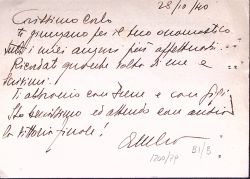 28/10/40
Carissimo Carlo
ti giungano per il tuo onomastico
tutti i miei auguri più affettuosi...
Ricordati qualche volta di me e
scrivimi.
Ti abbraccio con Irene e con
Sto benissimo ed attendo con ansia
la vittoria finale!
1700/79 B1/B